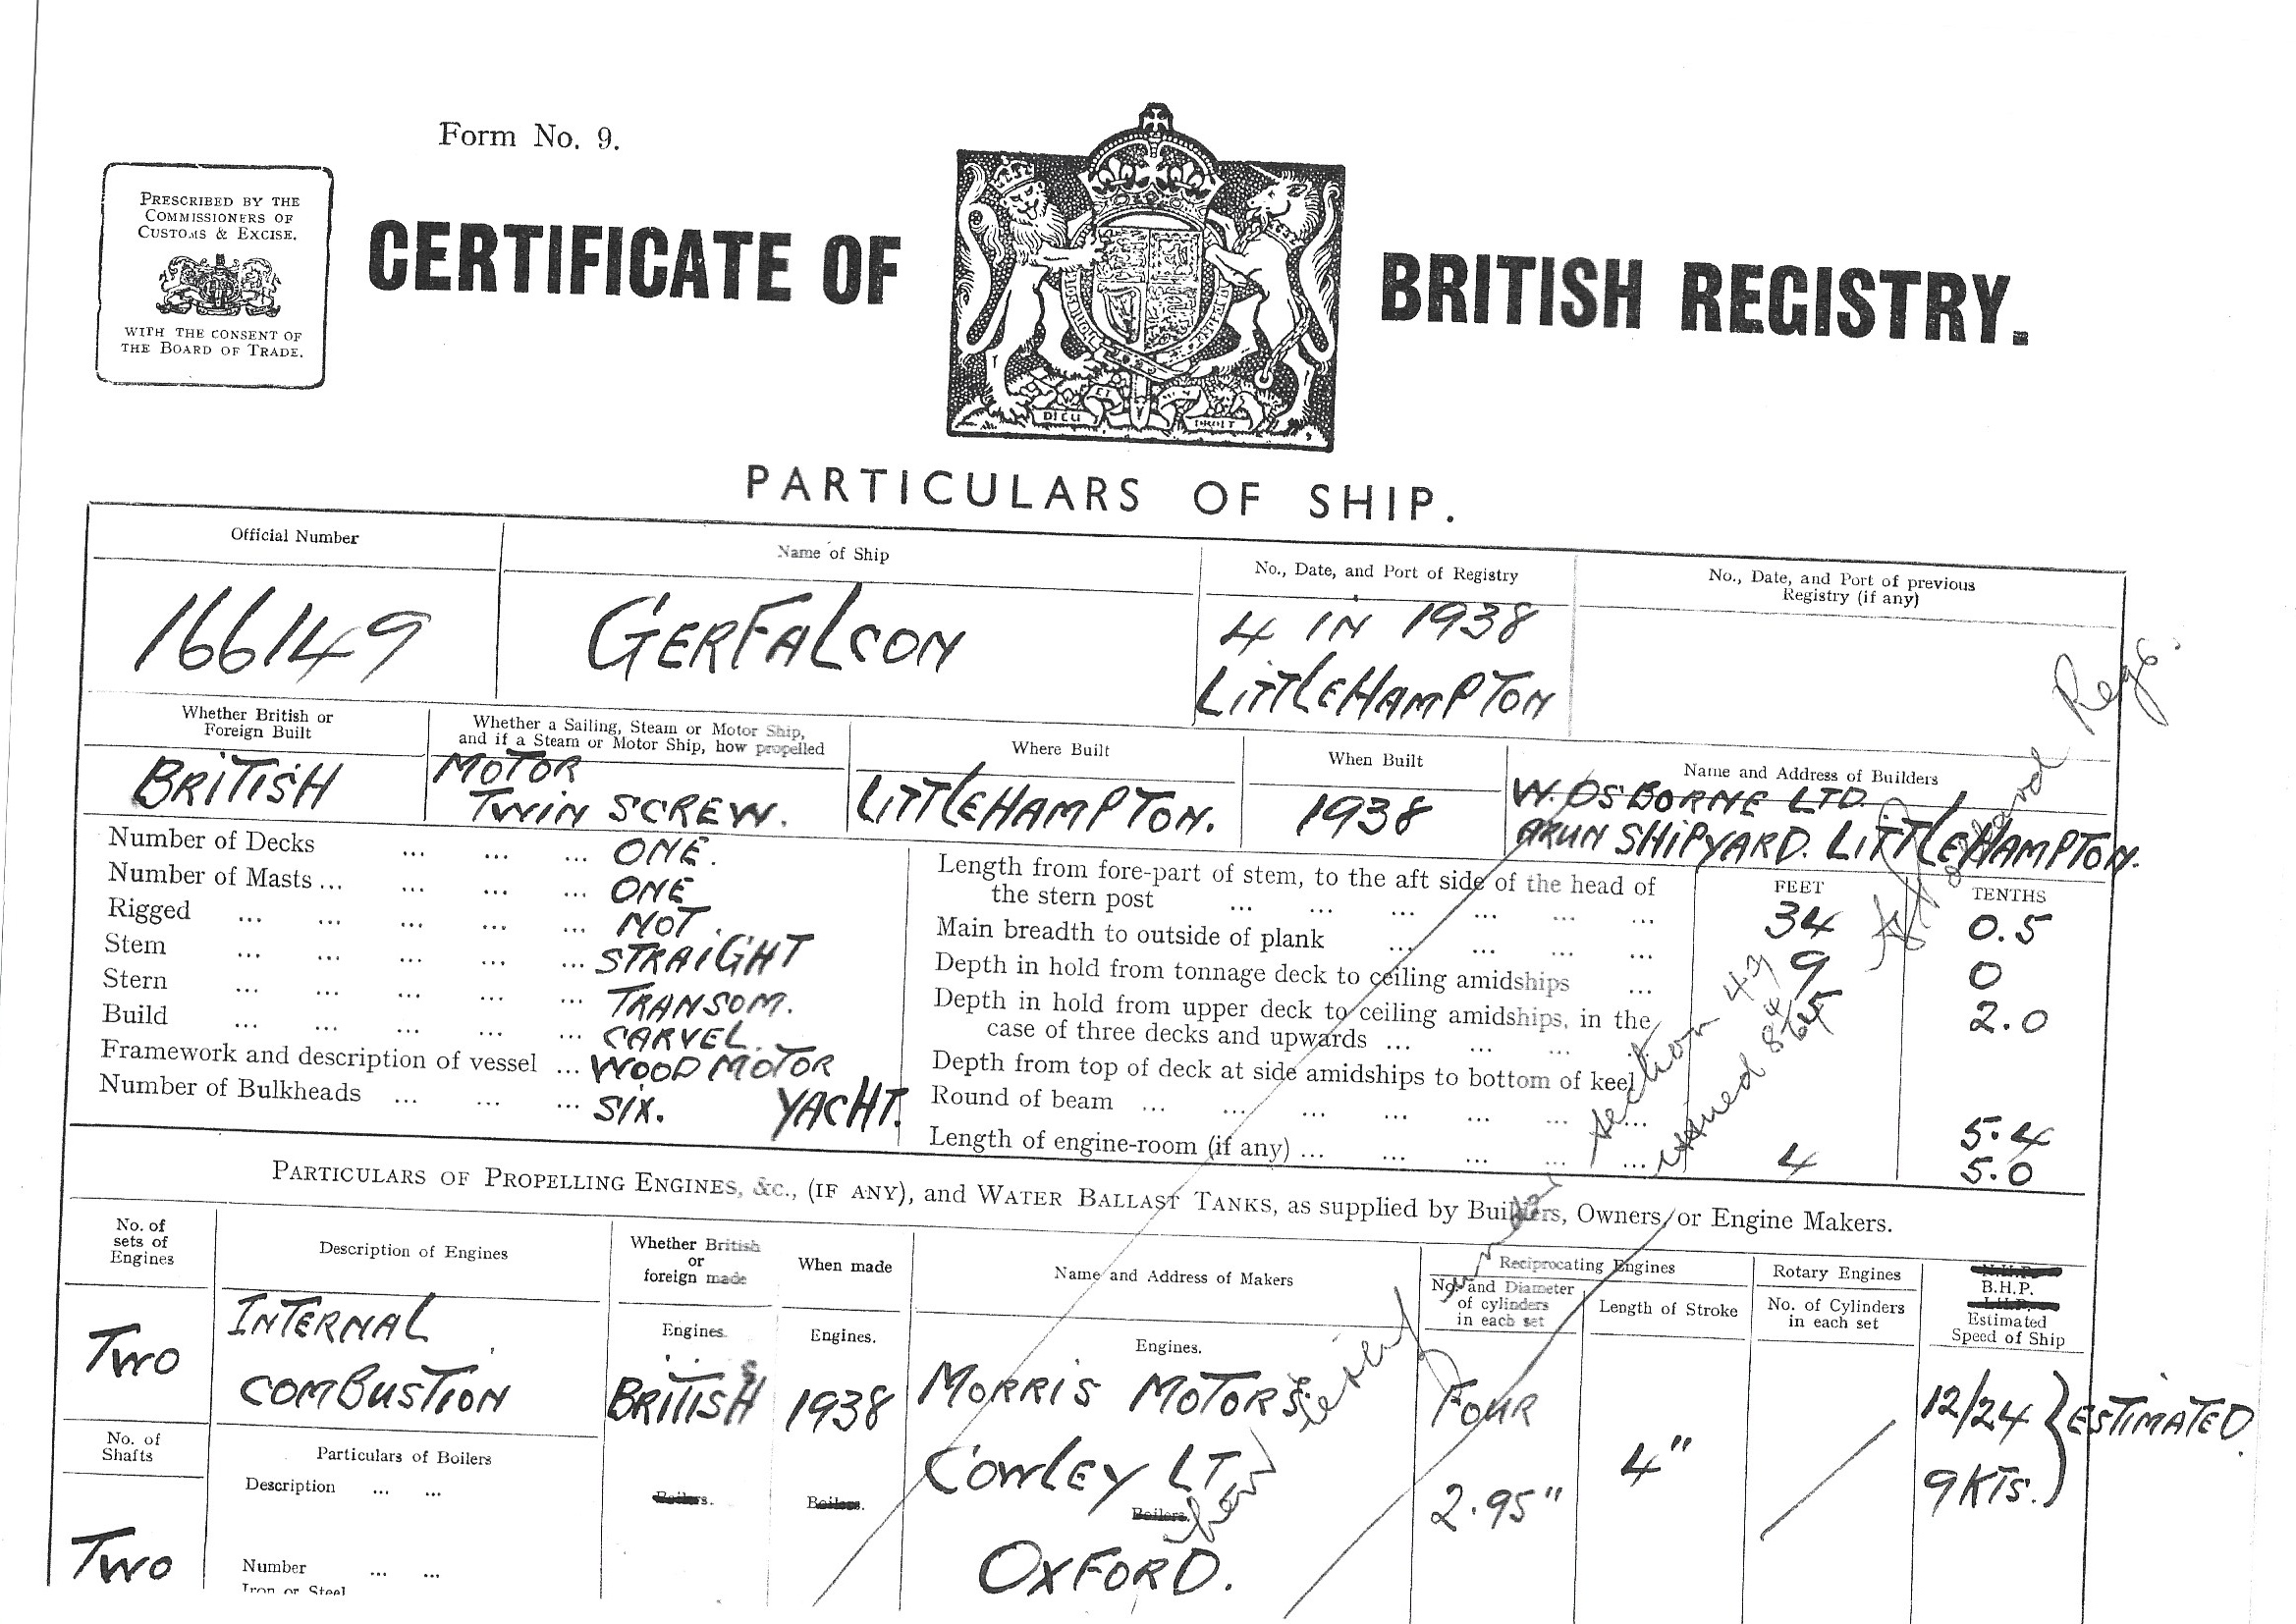 Form No. 9.
PRESCRIBED BY THE
COMMISSIONERS OF
CUSTOMS & EXCISE.
WITH THE CONSENT OF
THE BOARD OF TRADE.
CERTIFICATE OF BRITISH REGISTRY.
DIEU ET DROIT
PARTICULARS OF SHIP.
Official Number
Name of Ship
No., Date, and Port of Registry
No., Date, and Port of previous
Registry (if any)
166149
GERFALCON
4 IN 1938
LITTLEHAMPTON
Whether British or
Foreign Built
Whether a Sailing, Steam or Motor Ship,
and if a Steam or Motor Ship, how propelled
Where Built
When Built
Name and Address of Builders
BRITISH
MOTOR
TWIN SCREW.
LITTLEHAMPTON.
1938
W. OSBORNE LTD.
ARUN SHIPYARD. LITTLEHAMPTON.
Number of Decks ... ... ... ONE.
Number of Masts ... ... ... ... ONE
Rigged ... ... ... ... ... NOT.
Stem ... ... ... ... ... STRAIGHT
Stern ... ... ... ... ... TRANSOM.
Build ... ... ... ... ... CARVEL.
Framework and description of vessel ... WOOD MOTOR
YACHT.
Number of Bulkheads ... ... ... SIX.
FEET TENTHS
Length from fore-part of stem, to the aft side of the head of
the stern post ... ... ... ... ... ... 34 0.5
Main breadth to outside of plank ... ... ... ... 9 0
Depth in hold from tonnage deck to ceiling amidships ... 5 2.0
Depth in hold from upper deck to ceiling amidships, in the
case of three decks and upwards ... ... ... ...
Depth from top of deck at side amidships to bottom of keel
Round of beam ... ... ... ... ... ... ... 5.4
Length of engine-room (if any) ... ... ... ... ... 4 5.0
section 49
PARTICULARS OF PROPELLING ENGINES, &c., (IF ANY), and WATER BALLAST TANKS, as supplied by Builders, Owners, or Engine Makers.
No. of
sets of
Engines
Description of Engines
Whether British
or
foreign made
When made
Name and Address of Makers
Reciprocating Engines
No. and Diameter
of cylinders
in each set
Length of Stroke
Rotary Engines
No. of Cylinders
in each set
N.H.P.
B.H.P.
I.H.P.
Estimated
Speed of Ship
Engines.
Engines.
Engines.
TWO
INTERNAL
COMBUSTION
BRITISH
1938
MORRIS MOTORS
COWLEY LT
OXFORD.
FOUR
2.95"
4"
12/24
9 KTS.
ESTIMATED.
No. of
Shafts
Particulars of Boilers
Description ... ...
Boilers.
Boilers.
Boilers.
TWO
Number ... ...
Iron or Steel